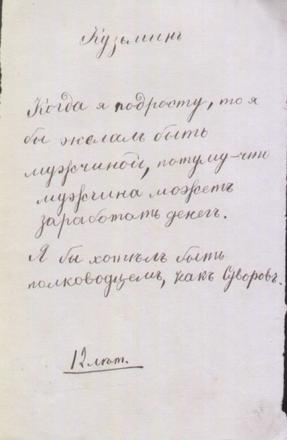 Кузьминъ
Когда я подросту, то я
бы желалъ быть
мужчиной, потуму-что
мужчина можетъ
заработать денег.
Я бы хотѣлъ быть
полководцемъ, какъ Суворовъ.
12 лѣт.